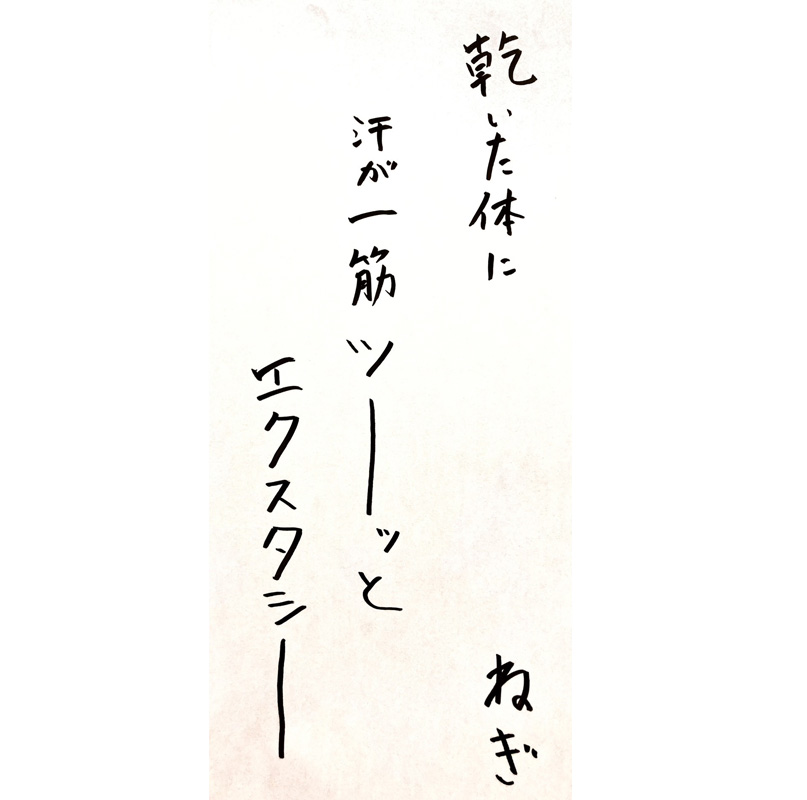 乾いた体に
汗が一筋ツーッと
エクスタシー
ねぎ